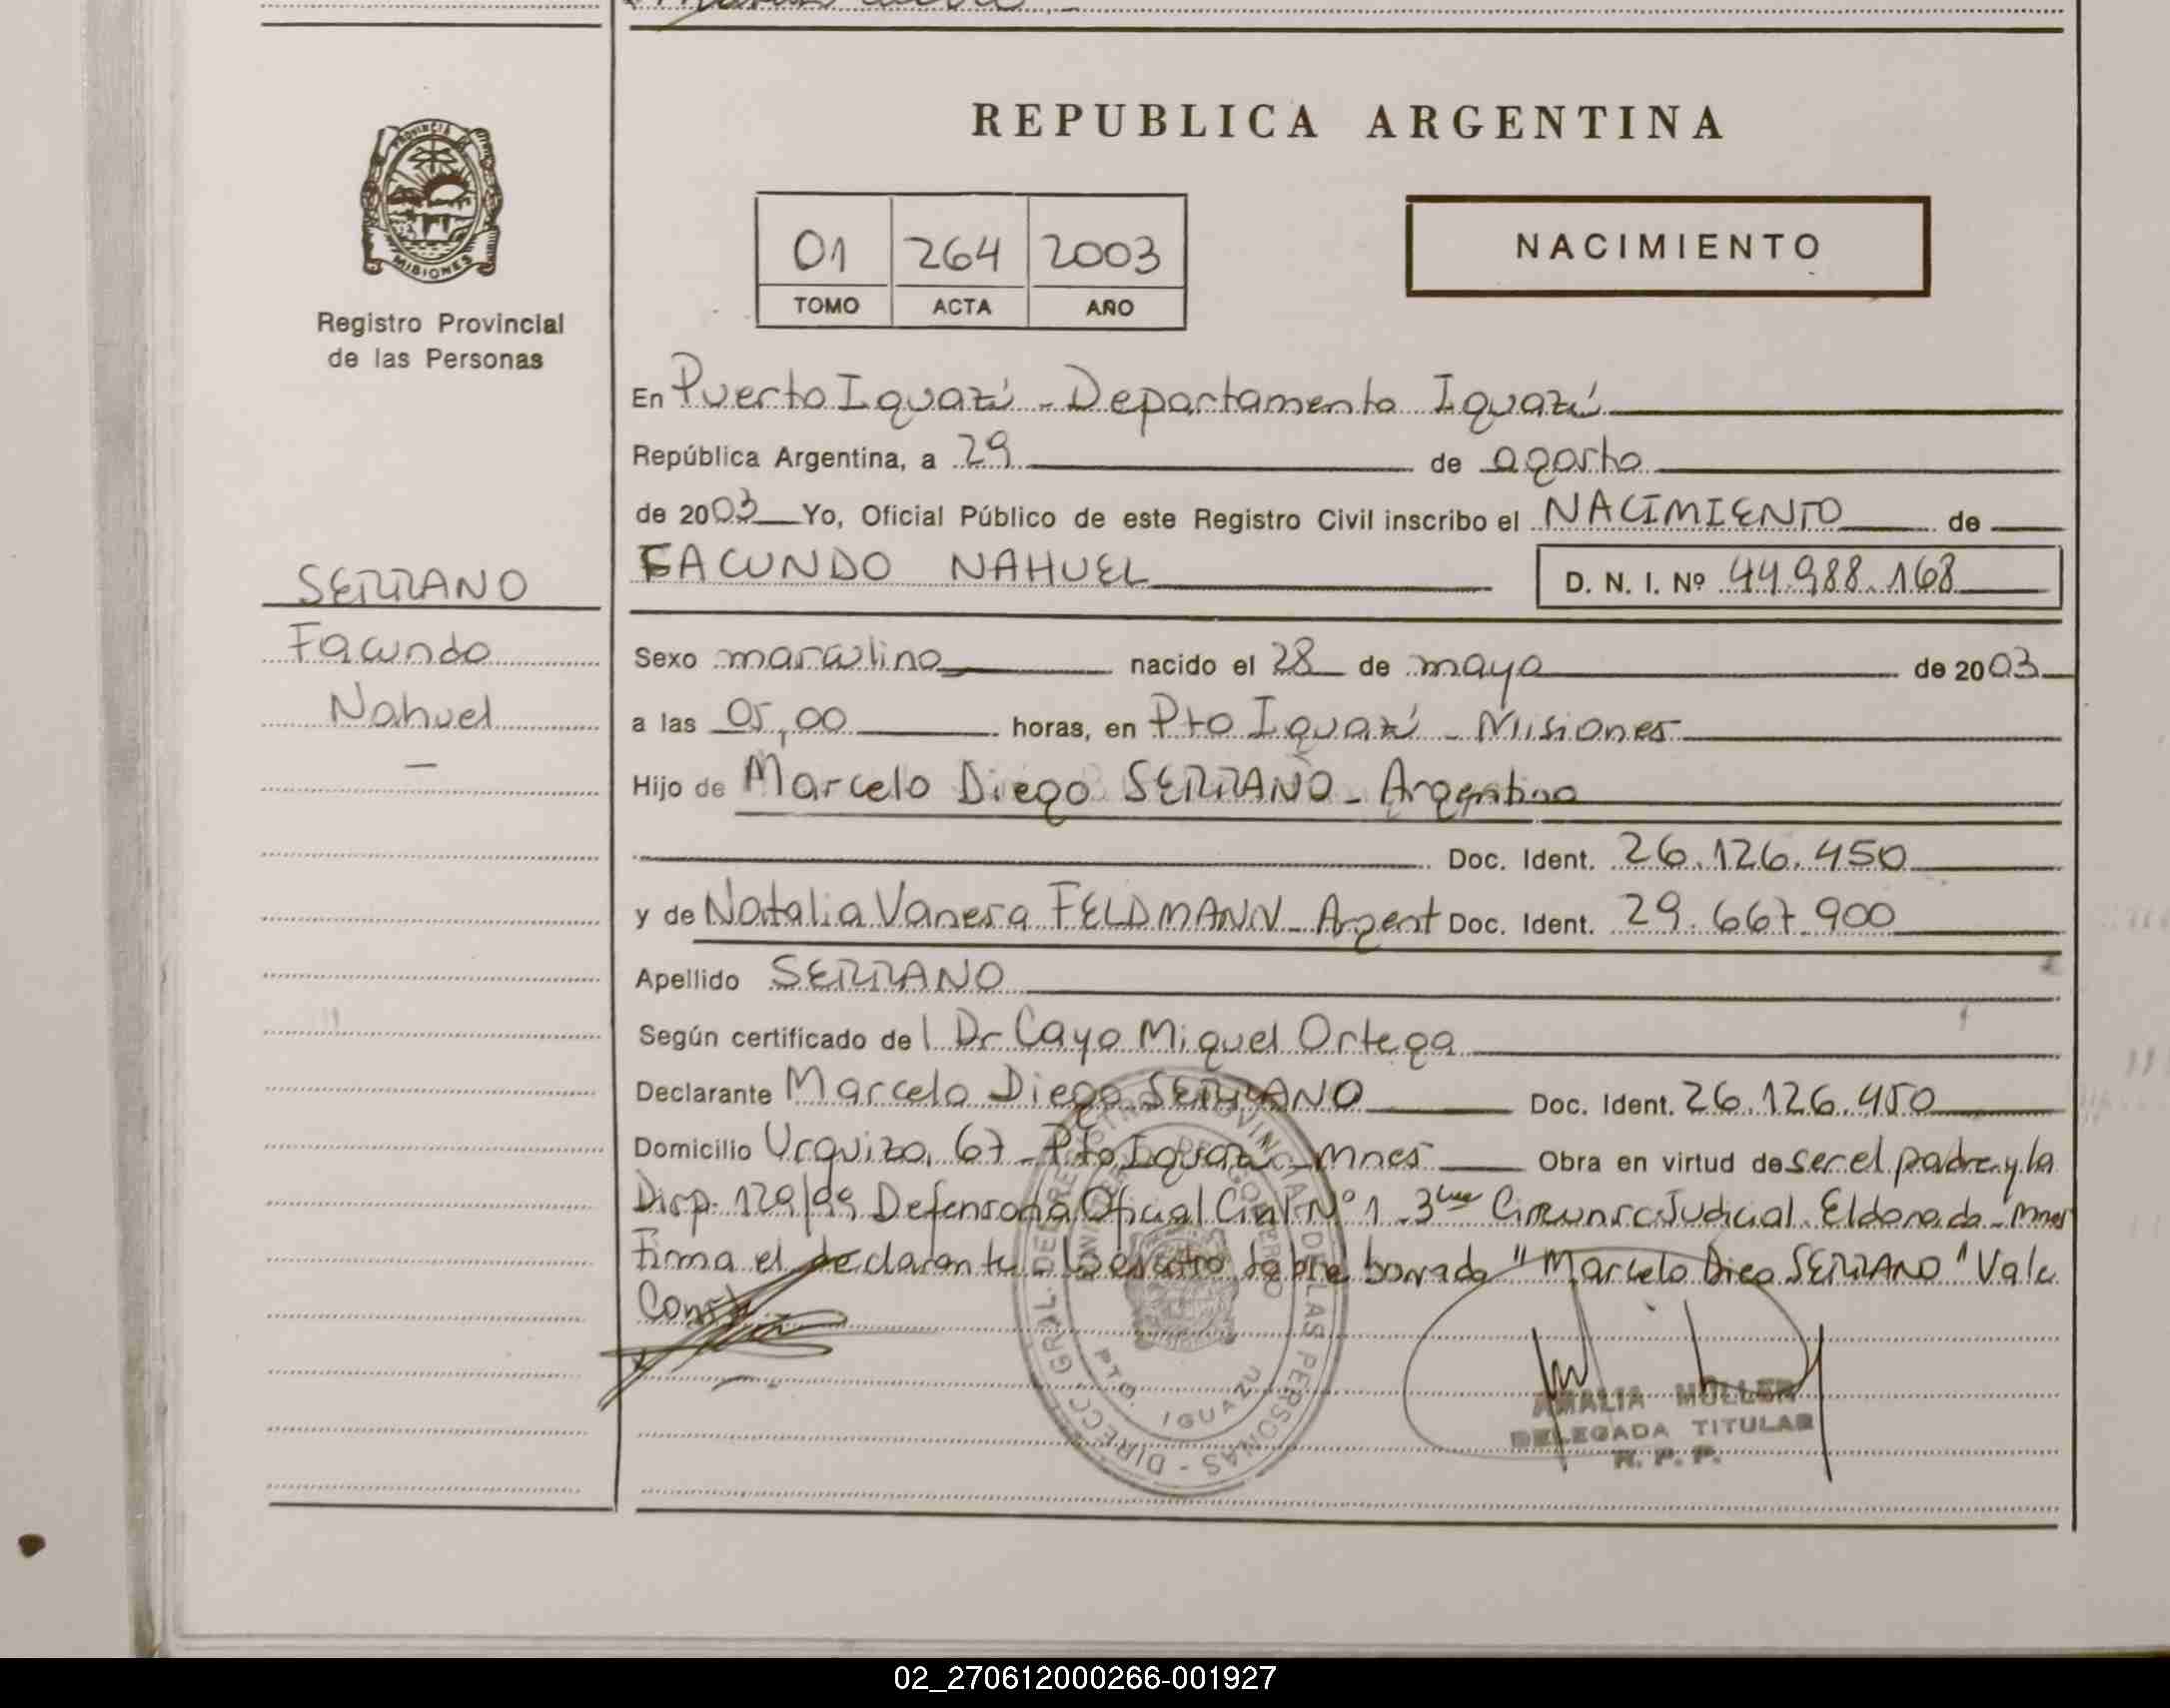 REPUBLICA ARGENTINA
PROVINCIA DE MISIONES
Registro Provincial
de las Personas
01 264 2003
TOMO ACTA AÑO
NACIMIENTO
En Puerto Iguazú - Departamento Iguazú
República Argentina, a 29 de agosto
de 2003 Yo, Oficial Público de este Registro Civil inscribo el NACIMIENTO de
FACUNDO NAHUEL D. N. I. Nº 44.988.168
SERRANO
Facundo
Nahuel
Sexo masculino nacido el 28 de mayo de 2003
a las 05,00 horas, en Pto Iguazú - Misiones
Hijo de Marcelo Diego SERRANO - Argentino
Doc. Ident. 26.126.450
y de Natalia Vanesa FELDMANN - Argent Doc. Ident. 29.667.900
Apellido SERRANO
Según certificado del Dr Cayo Miguel Ortega
Declarante Marcelo Diego SERRANO Doc. Ident. 26.126.450
Domicilio Urquiza 67 - Pto Iguazú - Mnes Obra en virtud de ser el padre y la
Disp. 129/99 Defensoría Oficial Civil Nº 1 - Circunsc Judicial Eldorado - Mnes
Firma el declarante - lo escrito sobre borrado "Marcelo Diego SERRANO" Vale
DIRECC. GRAL. DEL REGISTRO PROVINCIAL DE LAS PERSONAS
PTO. IGUAZU
AMALIA MULLER
DELEGADA TITULAR
R. P. P.
02_270612000266-001927